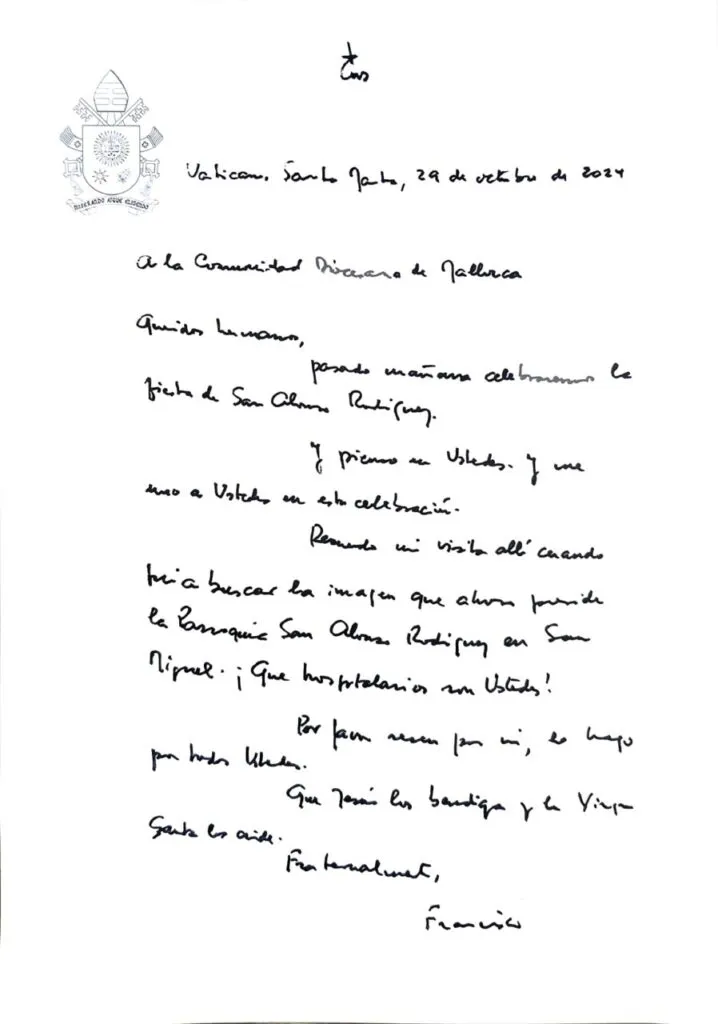 MISERANDO ATQUE ELIGENDO
Vaticano, Santa Marta, 29 de octubre de 2024
A la Comunidad Diocesana de Mallorca
Queridos hermanos,
pasado mañana celebraremos la
fiesta de San Alonso Rodríguez.
Y pienso en Ustedes. Y me
uno a Ustedes en esta celebración.
Recuerdo mi visita allí cuando
fui a buscar la imagen que ahora preside
la Parroquia San Alonso Rodriguez en San
Miguel. ¡Que hospitalarios son Ustedes!
Por favor recen por mi, lo hago
por todos Ustedes.
Que Jesús los bendiga y la Virgen
Santa los cuide.
Fraternalmente,
Francisco